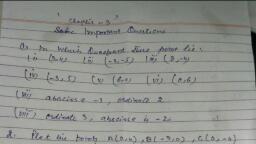 "Chapter - 3"
Some Important Questions
Q. In which Quadrant does point lie:
(ii) (-3,-5) (iii)
(iv) (-3,5) (v) (vi) (0,6)
(vii) abscissa -3, ordinate 2
(viii) ordinate 3, abscissa is -2
2. Plot the points A( B(-3,0), C(0,-4)